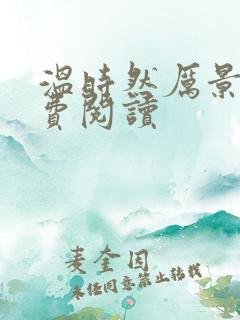 溫時然厲景
費閱讀
麦奎因
未经同意禁止转载